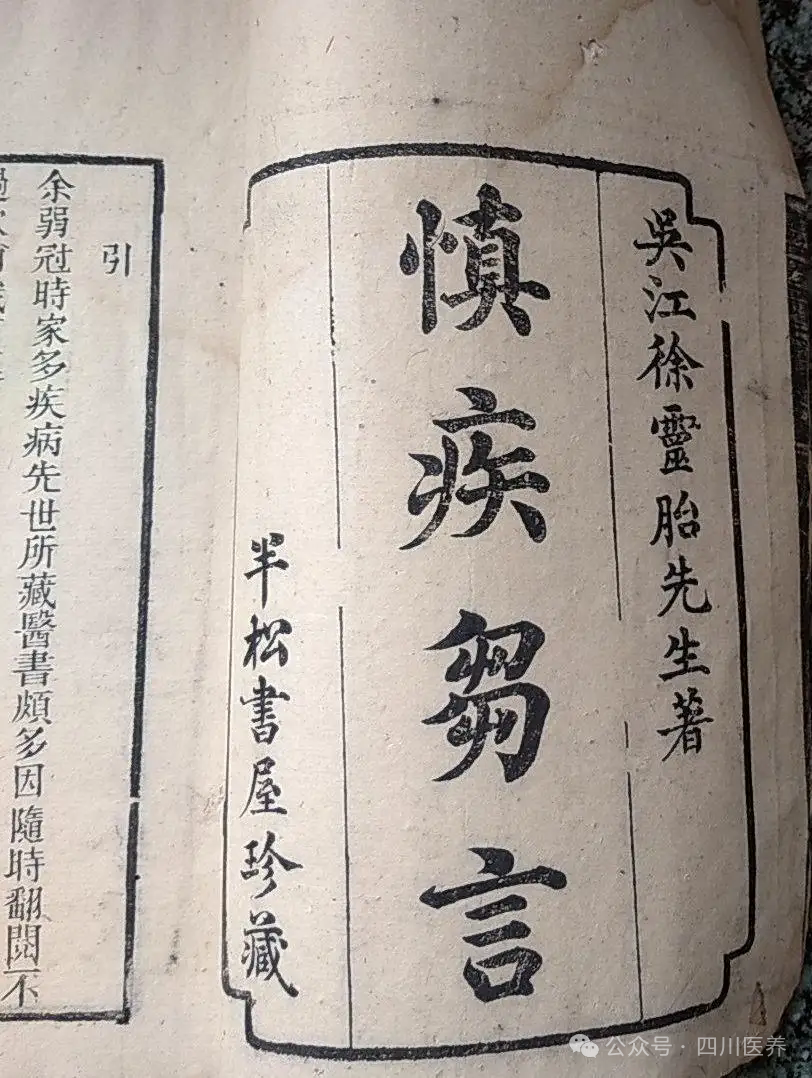 吳江徐靈胎先生著
慎疾芻言
半松書屋珍藏
引
余弱冠時家多疾病先世所藏醫書頗多因隨時翻閱不
公众号·四川医养